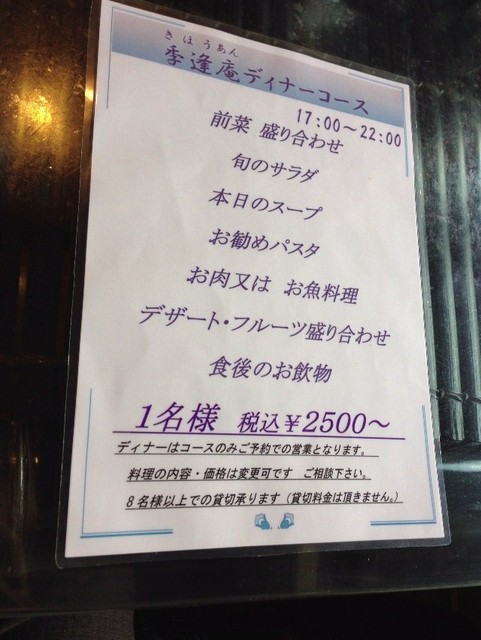 きほうあん
季逢庵ディナーコース
17:00～22:00
前菜 盛り合わせ
旬のサラダ
本日のスープ
お勧めパスタ
お肉又は お魚料理
デザート・フルーツ盛り合わせ
食後のお飲物
1名様 税込￥2500～
ディナーはコースのみご予約での営業となります。
料理の内容・価格は変更可です ご相談下さい。
8名様以上での貸切承ります（貸切料金は頂きません。）